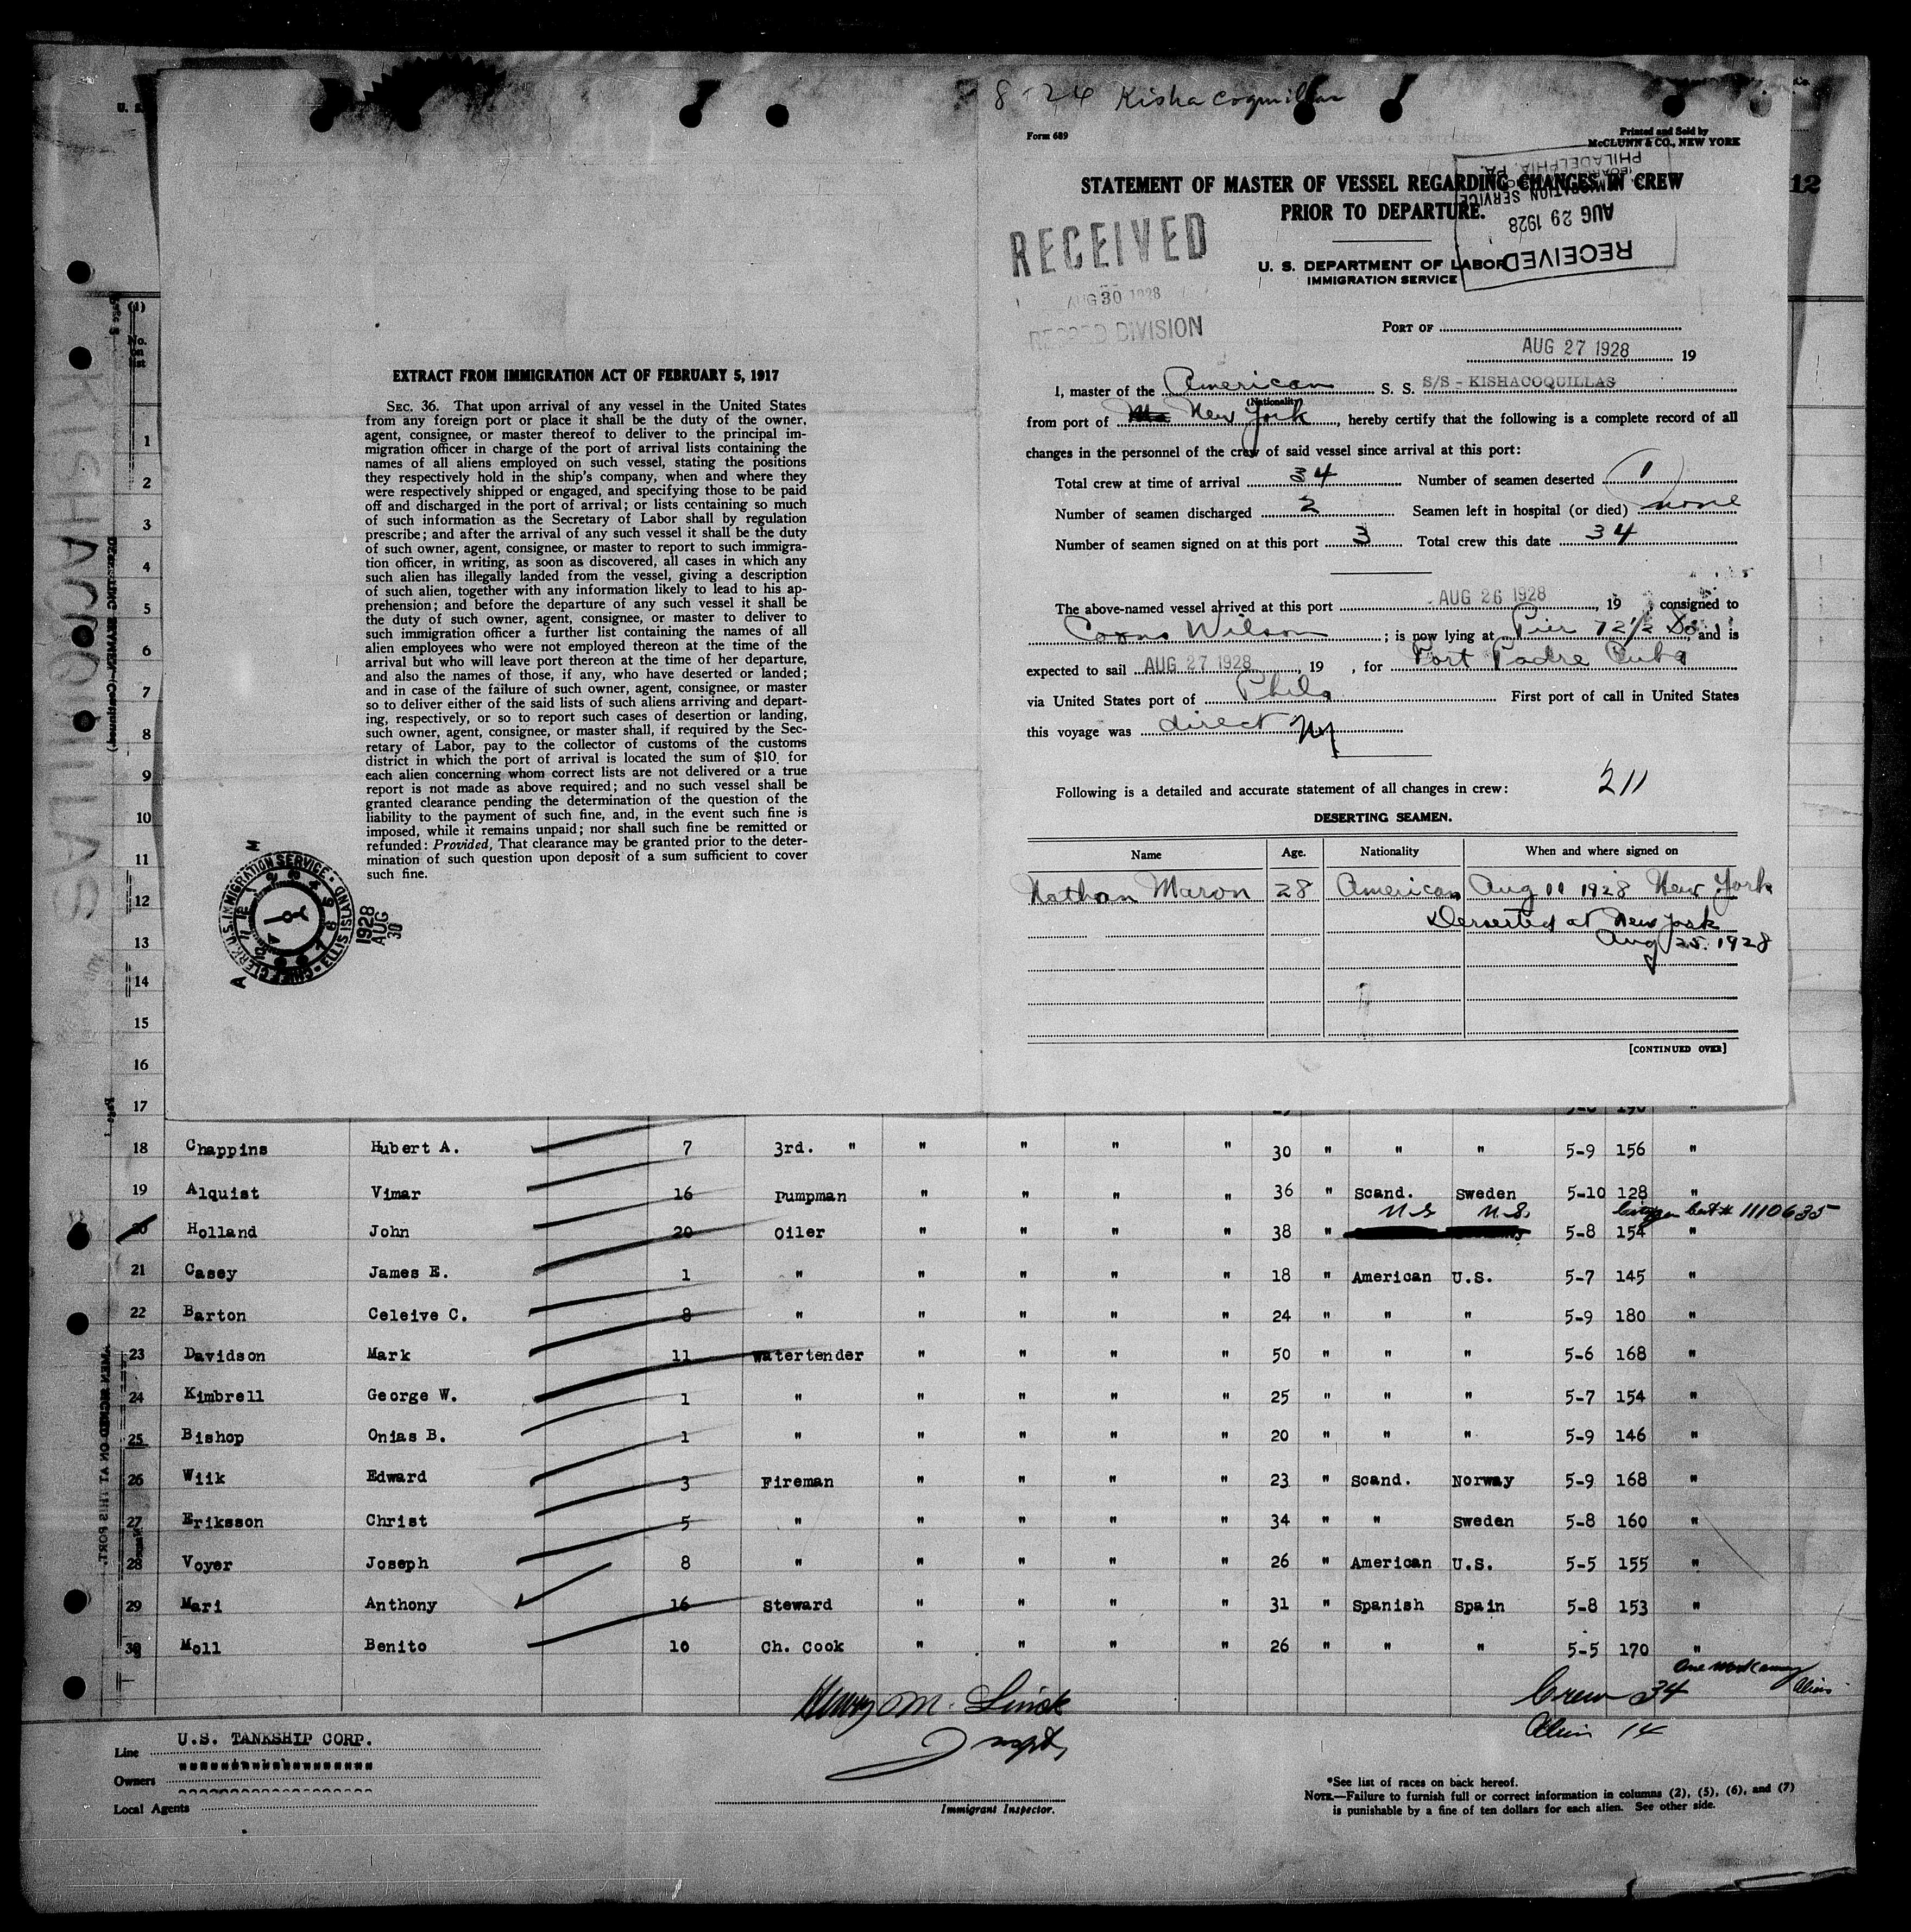 8-24 Kishacoquillas
Form 689
Printed and Sold by
McCLUNN & CO., NEW YORK
STATEMENT OF MASTER OF VESSEL REGARDING CHANGES IN CREW
PRIOR TO DEPARTURE.
RECEIVED
AUG 30 1928
RECORD DIVISION
RECEIVED
AUG 29 1928
IMMIGRATION SERVICE
PHILADELPHIA, PA.
12
U. S. DEPARTMENT OF LABOR
IMMIGRATION SERVICE
PORT OF
AUG 27 1928 19
I, master of the American S. S. S/S - KISHACOQUILLAS
(Nationality)
from port of New York, hereby certify that the following is a complete record of all
changes in the personnel of the crew of said vessel since arrival at this port:
Total crew at time of arrival 34 Number of seamen deserted 1
Number of seamen discharged 2 Seamen left in hospital (or died) none
Number of seamen signed on at this port 3 Total crew this date 34
The above-named vessel arrived at this port AUG 26 1928, 19 consigned to
Wilson; is now lying at Pier 72 1/2 and is
expected to sail AUG 27 1928, 19 , for Port Padre Cuba
via United States port of Phila First port of call in United States
this voyage was direct NY
Following is a detailed and accurate statement of all changes in crew: 211
DESERTING SEAMEN.
Name Age. Nationality When and where signed on
Nathan Maron 28 American Aug 11 1928 New York
Deserted at New York
Aug 25. 1928
[CONTINUED OVER]
EXTRACT FROM IMMIGRATION ACT OF FEBRUARY 5, 1917
SEC. 36. That upon arrival of any vessel in the United States
from any foreign port or place it shall be the duty of the owner,
agent, consignee, or master thereof to deliver to the principal im-
migration officer in charge of the port of arrival lists containing the
names of all aliens employed on such vessel, stating the positions
they respectively hold in the ship's company, when and where they
were respectively shipped or engaged, and specifying those to be paid
off and discharged in the port of arrival; or lists containing so much
of such information as the Secretary of Labor shall by regulation
prescribe; and after the arrival of any such vessel it shall be the duty
of such owner, agent, consignee, or master to report to such immigra-
tion officer, in writing, as soon as discovered, all cases in which any
such alien has illegally landed from the vessel, giving a description
of such alien, together with any information likely to lead to his ap-
prehension; and before the departure of any such vessel it shall be
the duty of such owner, agent, consignee, or master to deliver to
such immigration officer a further list containing the names of all
alien employees who were not employed thereon at the time of the
arrival but who will leave port thereon at the time of her departure,
and also the names of those, if any, who have deserted or landed;
and in case of the failure of such owner, agent, consignee, or master
so to deliver either of the said lists of such aliens arriving and depart-
ing, respectively, or so to report such cases of desertion or landing,
such owner, agent, consignee, or master shall, if required by the Sec-
retary of Labor, pay to the collector of customs of the customs
district in which the port of arrival is located the sum of $10 for
each alien concerning whom correct lists are not delivered or a true
report is not made as above required; and no such vessel shall be
granted clearance pending the determination of the question of the
liability to the payment of such fine, and, in the event such fine is
imposed, while it remains unpaid; nor shall such fine be remitted or
refunded: Provided, That clearance may be granted prior to the deter-
mination of such question upon deposit of a sum sufficient to cover
such fine.
CHIEF CLERK, U.S. IMMIGRATION SERVICE · ELLIS ISLAND
1928
AUG
30
KISHACOQUILLAS
(1)
No.
on
list
1
2
3
4
5
6
7
8
9
10
11
12
13
14
15
16
17
18 Chappins Hubert A. 7 3rd. " " " " " 30 " " " 5-9 156 "
19 Alquist Vimar 16 Pumpman " " " " 36 " Scand. Sweden 5-10 128 "
U.S. U.S. Cert # 1110635
20 Holland John 20 Oiler " " " " 38 " 5-8 154 "
21 Casey James E. 1 " " " " " 18 " American U.S. 5-7 145 "
22 Barton Celeive C. 8 " " " " " 24 " " " 5-9 180 "
23 Davidson Mark 11 Watertender " " " " 50 " " " 5-6 168 "
24 Kimbrell George W. 1 " " " " " 25 " " " 5-7 154 "
25 Bishop Onias B. 1 " " " " " 20 " " " 5-9 146 "
26 Wiik Edward 3 Fireman " " " " 23 " Scand. Norway 5-9 168 "
27 Eriksson Christ 5 " " " " " 34 " " Sweden 5-8 160 "
28 Voyer Joseph 8 " " " " " 26 " American U.S. 5-5 155 "
29 Mari Anthony 16 Steward " " " " 31 " Spanish Spain 5-8 153 "
30 Moll Benito 10 Ch. Cook " " " " 26 " " " 5-5 170 "
Henry M. Linck
Inspt,
Crew 34
Alien 14
Line U.S. TANKSHIP CORP.
Owners
Local Agents
Immigrant Inspector.
*See list of races on back hereof.
NOTE.—Failure to furnish full or correct information in columns (2), (5), (6), and (7)
is punishable by a fine of ten dollars for each alien. See other side.